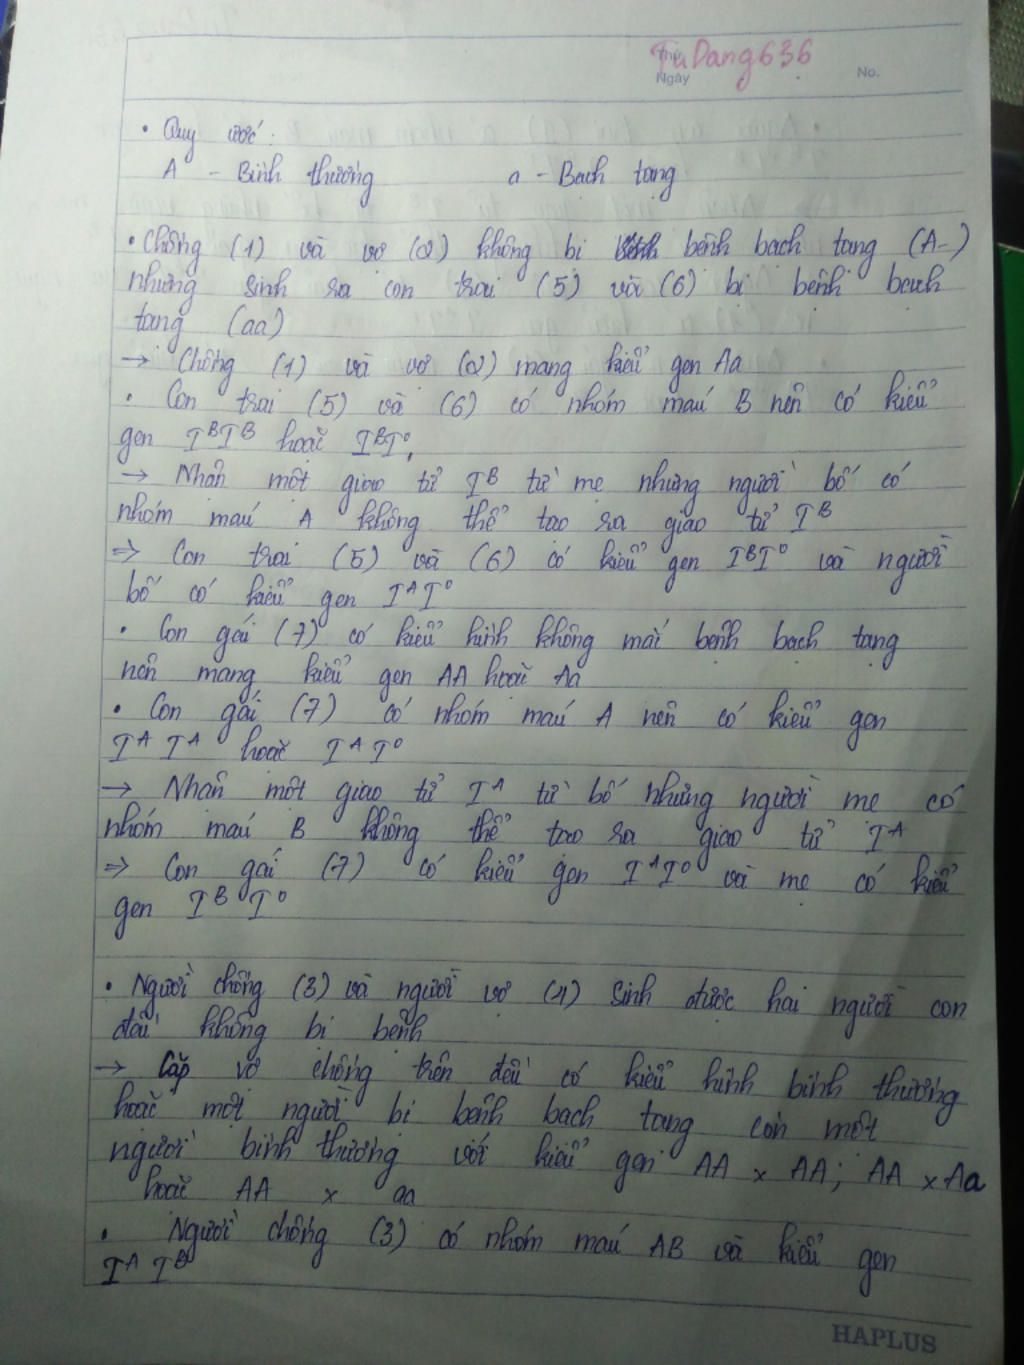 TuDang636
Thứ
Ngày No.
• Quy ước:
A - Bình thường a - Bạch tạng
• Chồng (1) và vợ (2) không bị bệnh bạch tạng (A-)
nhưng sinh ra con trai (5) và (6) bị bệnh bạch
tạng (aa)
→ Chồng (1) và vợ (2) mang kiểu gen Aa
• Con trai (5) và (6) có nhóm máu B nên có kiểu
gen IᴮIᴮ hoặc IᴮI⁰.
→ Nhận một giao tử Iᴮ từ mẹ nhưng người bố có
nhóm máu A không thể tạo ra giao tử Iᴮ
⇒ Con trai (5) và (6) có kiểu gen IᴮI⁰ và người
bố có kiểu gen IᴬI⁰
• Con gái (7) có kiểu hình không mắc bệnh bạch tạng
nên mang kiểu gen AA hoặc Aa
• Con gái (7) có nhóm máu A nên có kiểu gen
IᴬIᴬ hoặc IᴬI⁰
→ Nhận một giao tử Iᴬ từ bố nhưng người mẹ có
nhóm máu B không thể tạo ra giao tử Iᴬ
⇒ Con gái (7) có kiểu gen IᴬI⁰ và mẹ có kiểu
gen IᴮI⁰
• Người chồng (3) và người vợ (4) sinh được hai người con
đều không bị bệnh
→ Cặp vợ chồng trên đều có kiểu hình bình thường
hoặc một người bị bệnh bạch tạng còn một
người bình thường với kiểu gen AA x AA; AA x Aa
hoặc AA x aa
• Người chồng (3) có nhóm máu AB và kiểu gen
IᴬIᴮ
HAPLUS